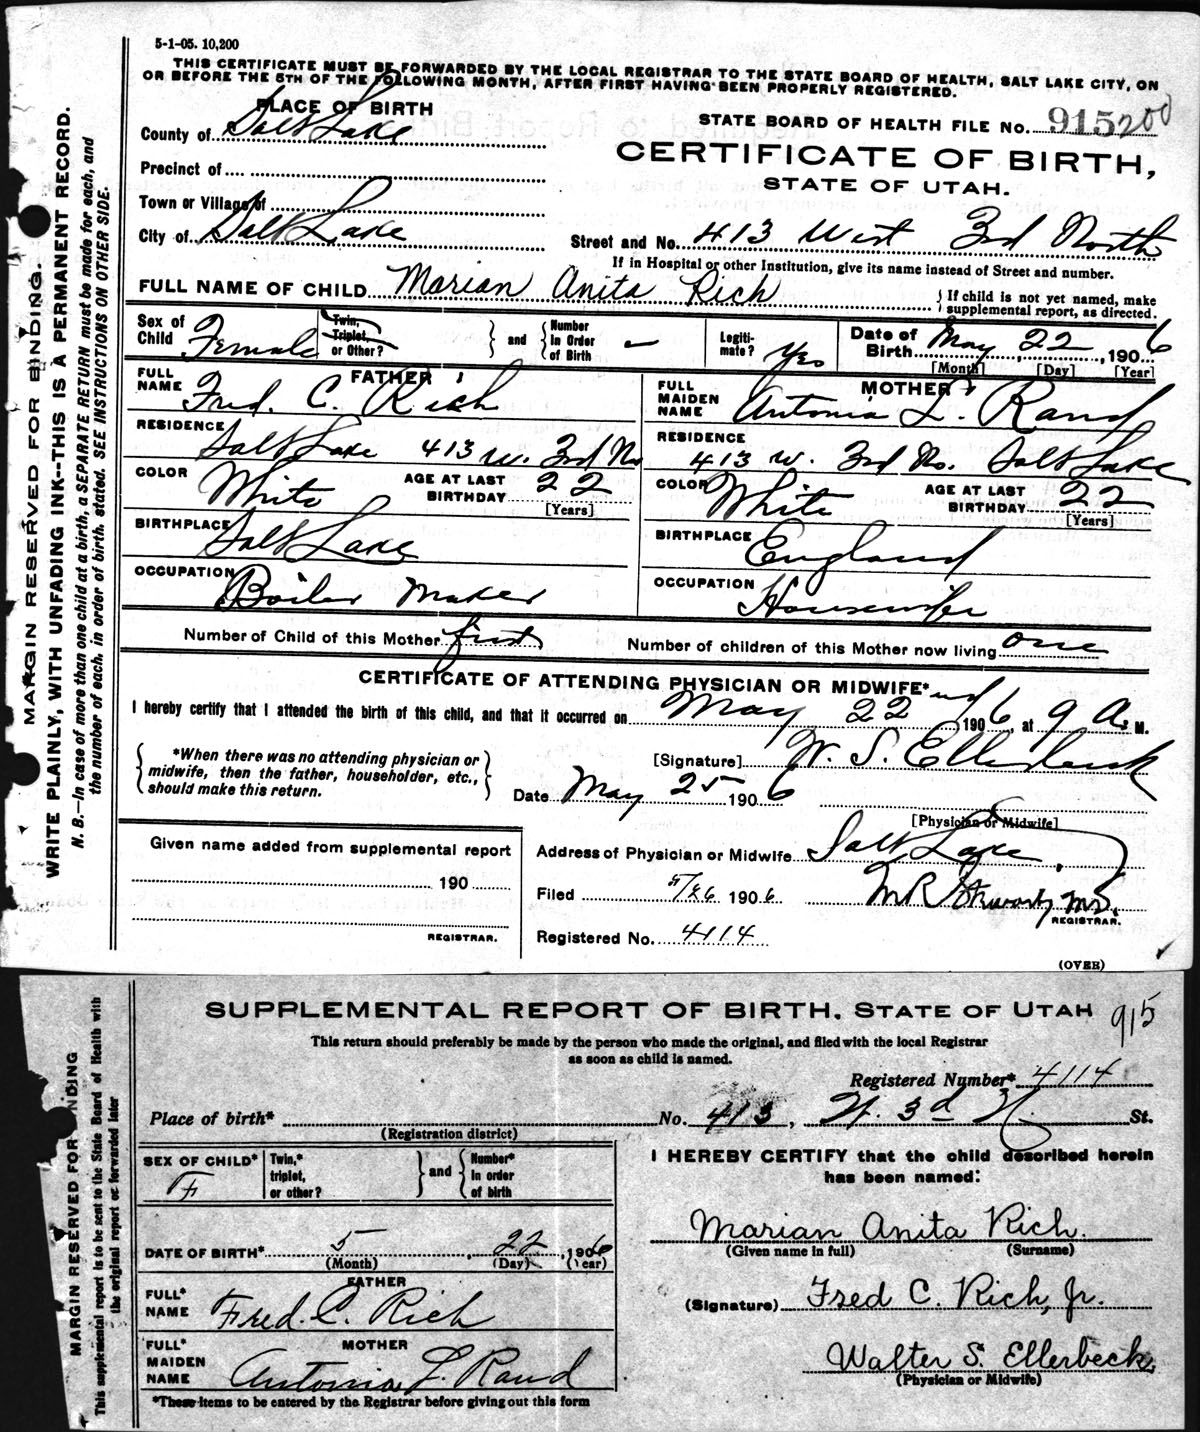 5-1-05. 10,200
THIS CERTIFICATE MUST BE FORWARDED BY THE LOCAL REGISTRAR TO THE STATE BOARD OF HEALTH, SALT LAKE CITY, ON
OR BEFORE THE 5TH OF THE FOLLOWING MONTH, AFTER FIRST HAVING BEEN PROPERLY REGISTERED.
PLACE OF BIRTH
County of Salt Lake
STATE BOARD OF HEALTH FILE No. 915 200
CERTIFICATE OF BIRTH,
STATE OF UTAH.
Precinct of
Town or Village of
City of Salt Lake
Street and No. 413 West 3rd North
If in Hospital or other Institution, give its name instead of Street and number.
FULL NAME OF CHILD Marian Anita Rich
{ If child is not yet named, make
supplemental report, as directed.
Sex of Child Female
Twin, Triplet, or Other? } and { Number In Order of Birth –
Legiti-mate? Yes
Date of Birth May 22, 1906
[Month] [Day] [Year]
FATHER
FULL NAME Fred. C. Rich
RESIDENCE Salt Lake 413 W. 3rd No
COLOR White AGE AT LAST BIRTHDAY 22
[Years]
BIRTHPLACE Salt Lake
OCCUPATION Boiler Maker
MOTHER
FULL MAIDEN NAME Antonia L. Rand
RESIDENCE 413 W. 3rd No. Salt Lake
COLOR White AGE AT LAST BIRTHDAY 22
[Years]
BIRTHPLACE England
OCCUPATION Housewife
Number of Child of this Mother first Number of children of this Mother now living one
CERTIFICATE OF ATTENDING PHYSICIAN OR MIDWIFE*
I hereby certify that I attended the birth of this child, and that it occurred on May 22nd 1906, at 9 A. M.
{ *When there was no attending physician or
midwife, then the father, householder, etc.,
should make this return. }
[Signature] W. S. Ellerbeck
Date May 25 1906
[Physician or Midwife]
Given name added from supplemental report
190
REGISTRAR.
Address of Physician or Midwife Salt Lake
Filed 5/26 1906
M.D.
REGISTRAR.
Registered No. 4114
(OVER)
MARGIN RESERVED FOR BINDING.
WRITE PLAINLY, WITH UNFADING INK--THIS IS A PERMANENT RECORD.
N. B.—In case of more than one child at a birth, a SEPARATE RETURN must be made for each, and
the number of each, in order of birth, stated. SEE INSTRUCTIONS ON OTHER SIDE.
SUPPLEMENTAL REPORT OF BIRTH, STATE OF UTAH 915
This return should preferably be made by the person who made the original, and filed with the local Registrar
as soon as child is named.
Registered Number* 4114
Place of birth* No. 413, W. 3d N. St.
(Registration district)
SEX OF CHILD* F
Twin,* triplet, or other? } and { Number* In order of birth
DATE OF BIRTH* 5, 22, 1906
(Month) (Day) (Year)
FATHER
FULL* NAME Fred. C. Rich
MOTHER
FULL* MAIDEN NAME Antonia L. Rand
*These items to be entered by the Registrar before giving out this form
I HEREBY CERTIFY that the child described herein
has been named:
Marian Anita Rich.
(Given name in full) (Surname)
(Signature) Fred C. Rich, Jr.
Walter S. Ellerbeck,
(Physician or Midwife)
MARGIN RESERVED FOR BINDING
This supplemental report is to be sent to the State Board of Health with
the original report or forwarded later